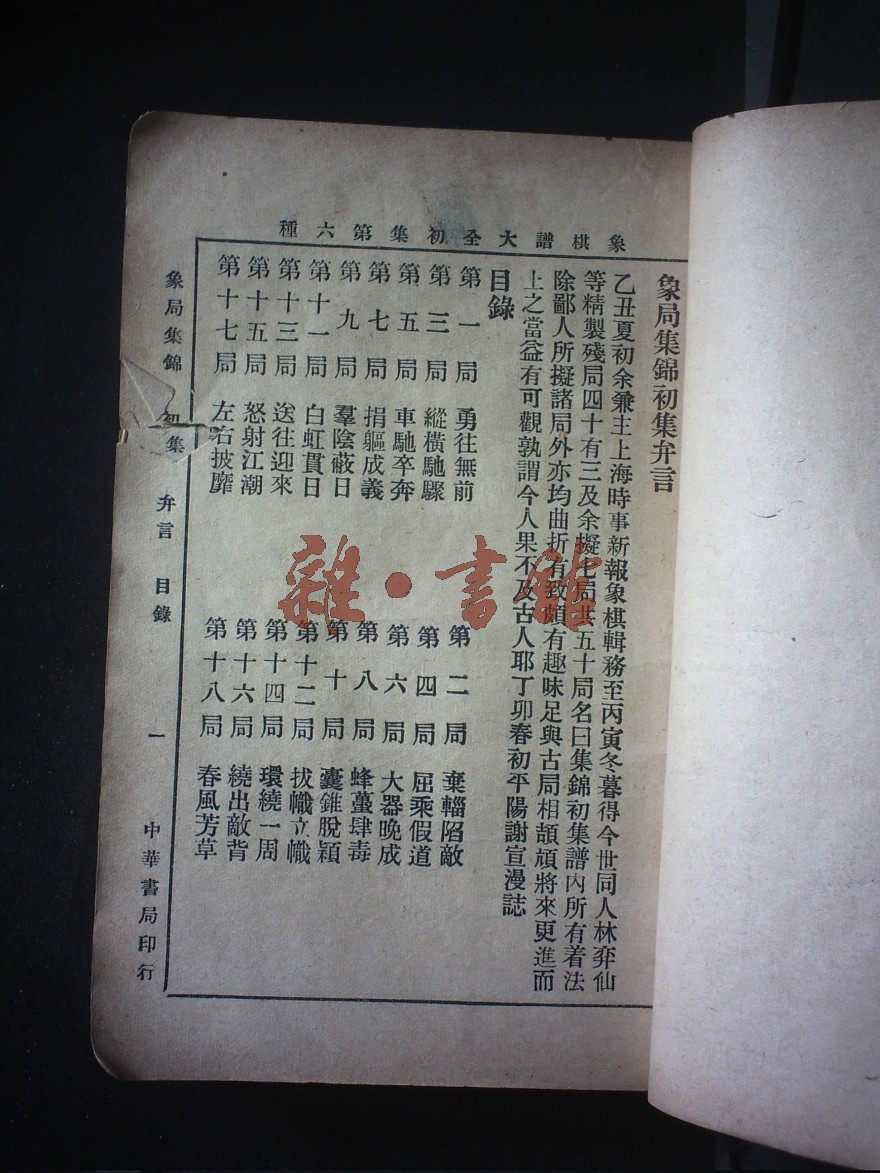 象棋譜大全初集第六種
象局集錦初集弁言
乙丑夏初余兼主上海時事新報象棋輯務至丙寅冬暮得今世同人林弈仙
等精製殘局四十有三及余擬七局共五十局名曰集錦初集譜內所有着法
除鄙人所擬諸局外亦均曲折有致頗有趣味足與古局相頡頏將來更進而
上之當益有可觀孰謂今人果不及古人耶丁卯春初平陽謝宣漫誌
目錄
第一局 勇往無前
第二局 棄輜陷敵
第三局 縱橫馳驟
第四局 屈乘假道
第五局 車馳卒奔
第六局 大器晚成
第七局 捐軀成義
第八局 蜂蠆肆毒
第九局 羣陰蔽日
第十局 囊錐脫穎
第十一局 白虹貫日
第十二局 拔幟立幟
第十三局 送往迎來
第十四局 環繞一周
第十五局 怒射江潮
第十六局 繞出敵背
第十七局 左右披靡
第十八局 春風芳草
象局集錦 初集 弁言 目錄 一 中華書局印行
雜·書館